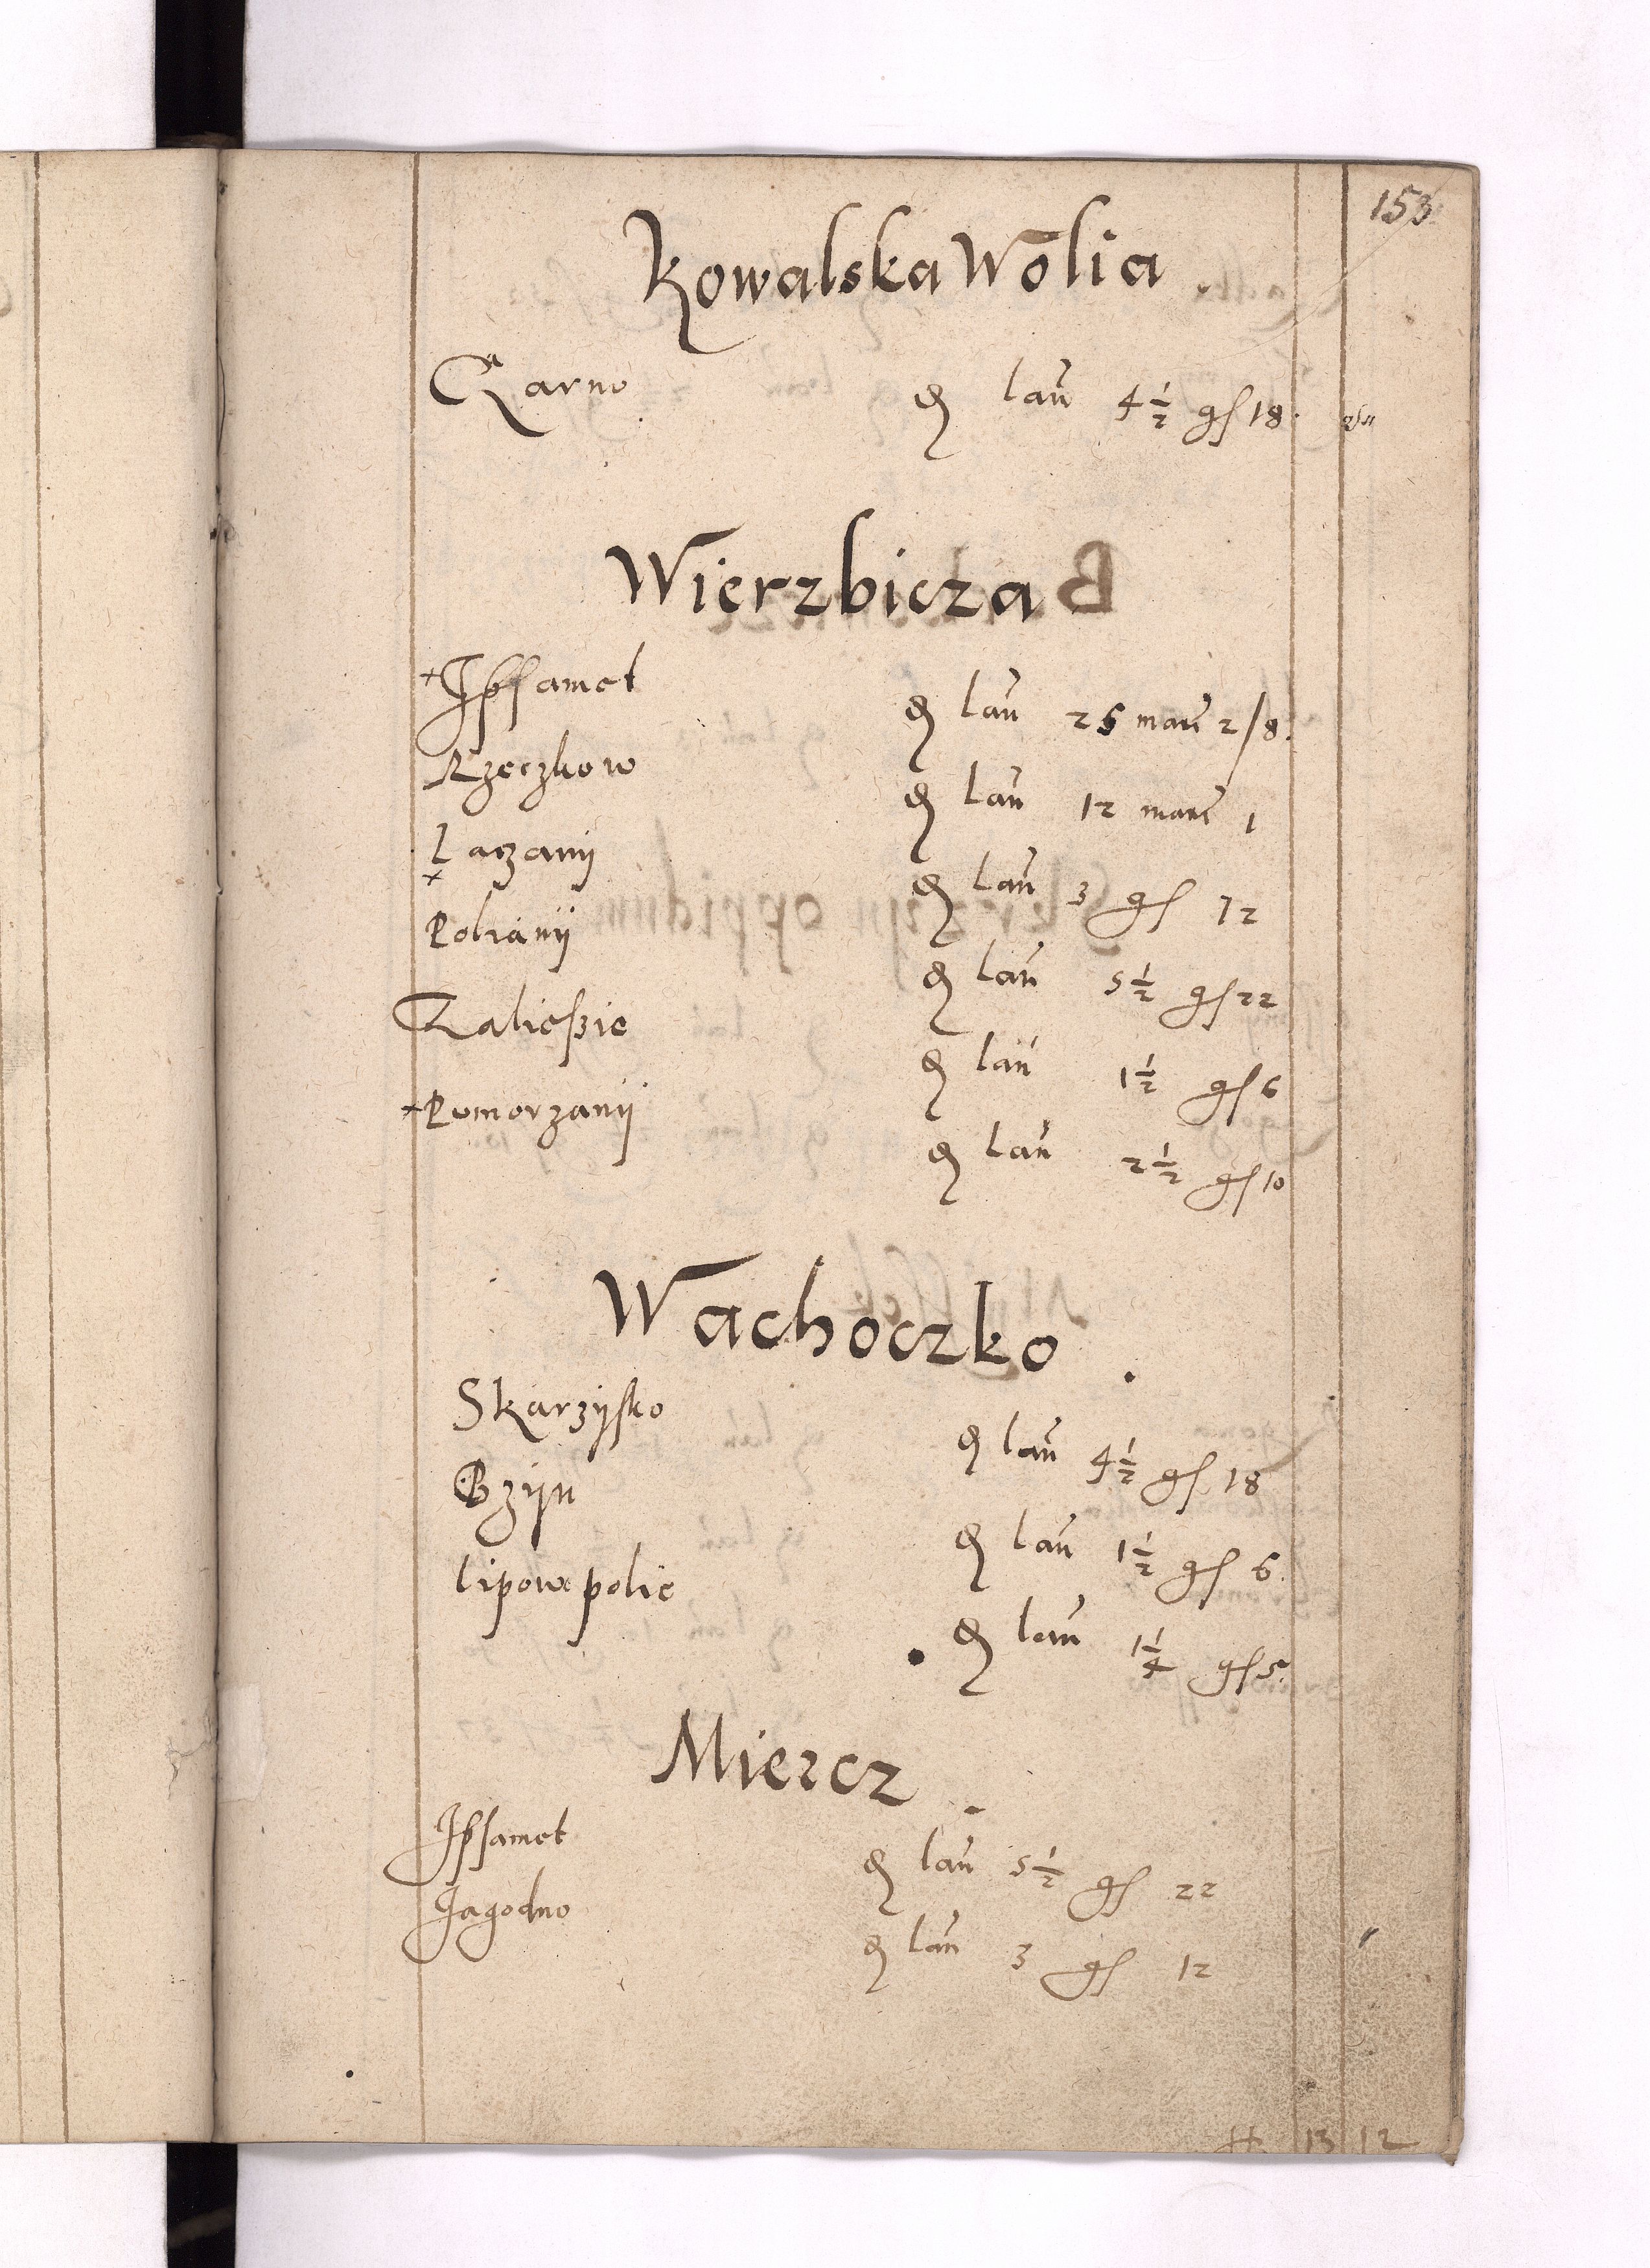 153
Kowalska Wolia
Czarno de lan 4 1/2 gs 18.
Wierzbicza
+ Ipsamet de lan 25 marc 2/8.
Rzeczkow de lan 12 marc 1
Laczany de lan 3 gs 12
+
Polrany de lan 5 1/2 gs 22
Zaliesie de lan 1 1/2 gs 6
+ Pomorzany de lan 2 1/2 gs 10
Wachoczko.
Skarzysko de lan 4 1/2 gs 18
Bzijn de lan 1 1/2 gs 6.
Lipowe polie de lan 1 1/4 gs 5.
Miercz
Ipsamet de lan 5 1/2 gs 22
Jagodno de lan 3 gs 12
13 12